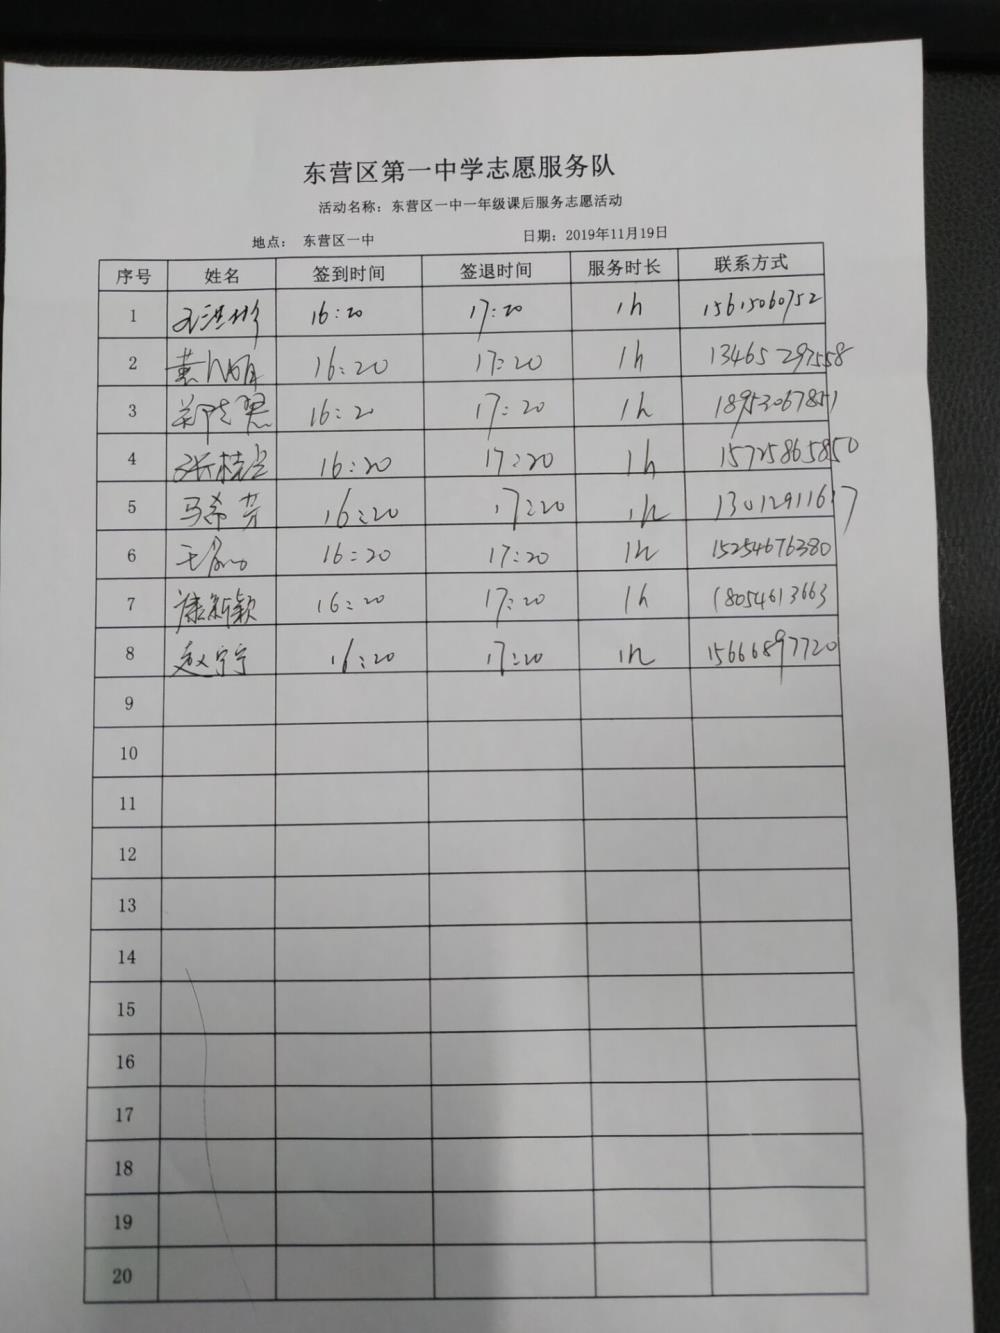 东营区第一中学志愿服务队
活动名称：东营区一中一年级课后服务志愿活动
地点： 东营区一中 日期：2019年11月19日
序号 姓名 签到时间 签退时间 服务时长 联系方式
1 16:20 17:20 1h 15615060752
2 16:20 17:20 1h 13465297558
3 16:2 17:20 1h 18953067851
4 16:20 17:20 1h 15725865850
5 马希芳 16:20 17:20 1h
6 16:20 17:20 1h 15254676380
7 康新颖 16:20 17:20 1h 18054613663
8 赵宁宁 16:20 17:20 1h 15666897720
9
10
11
12
13
14
15
16
17
18
19
20